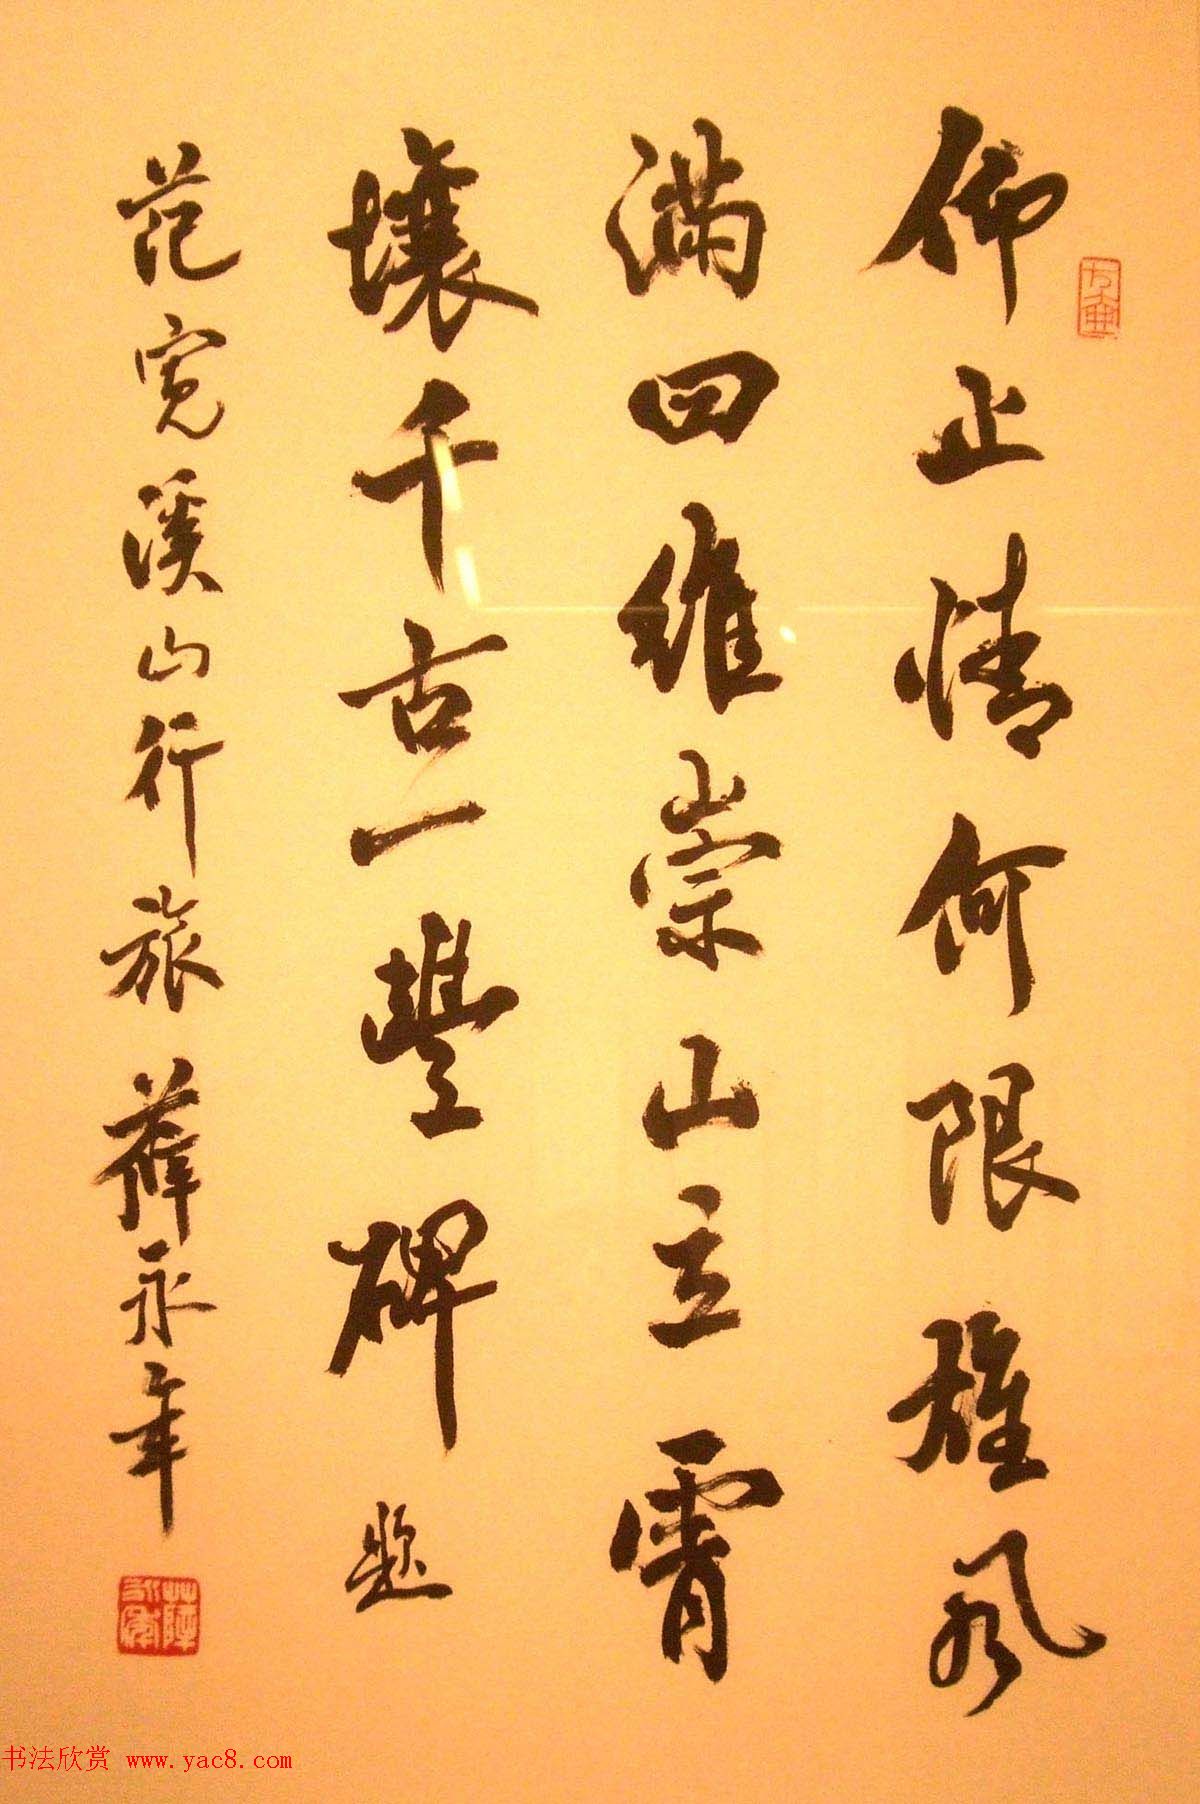 仰止情何限雄风
满四维崇山立霄
壤千古一丰碑题
范宽溪山行旅薛永年
薛永年
书法欣赏 www.yac8.com